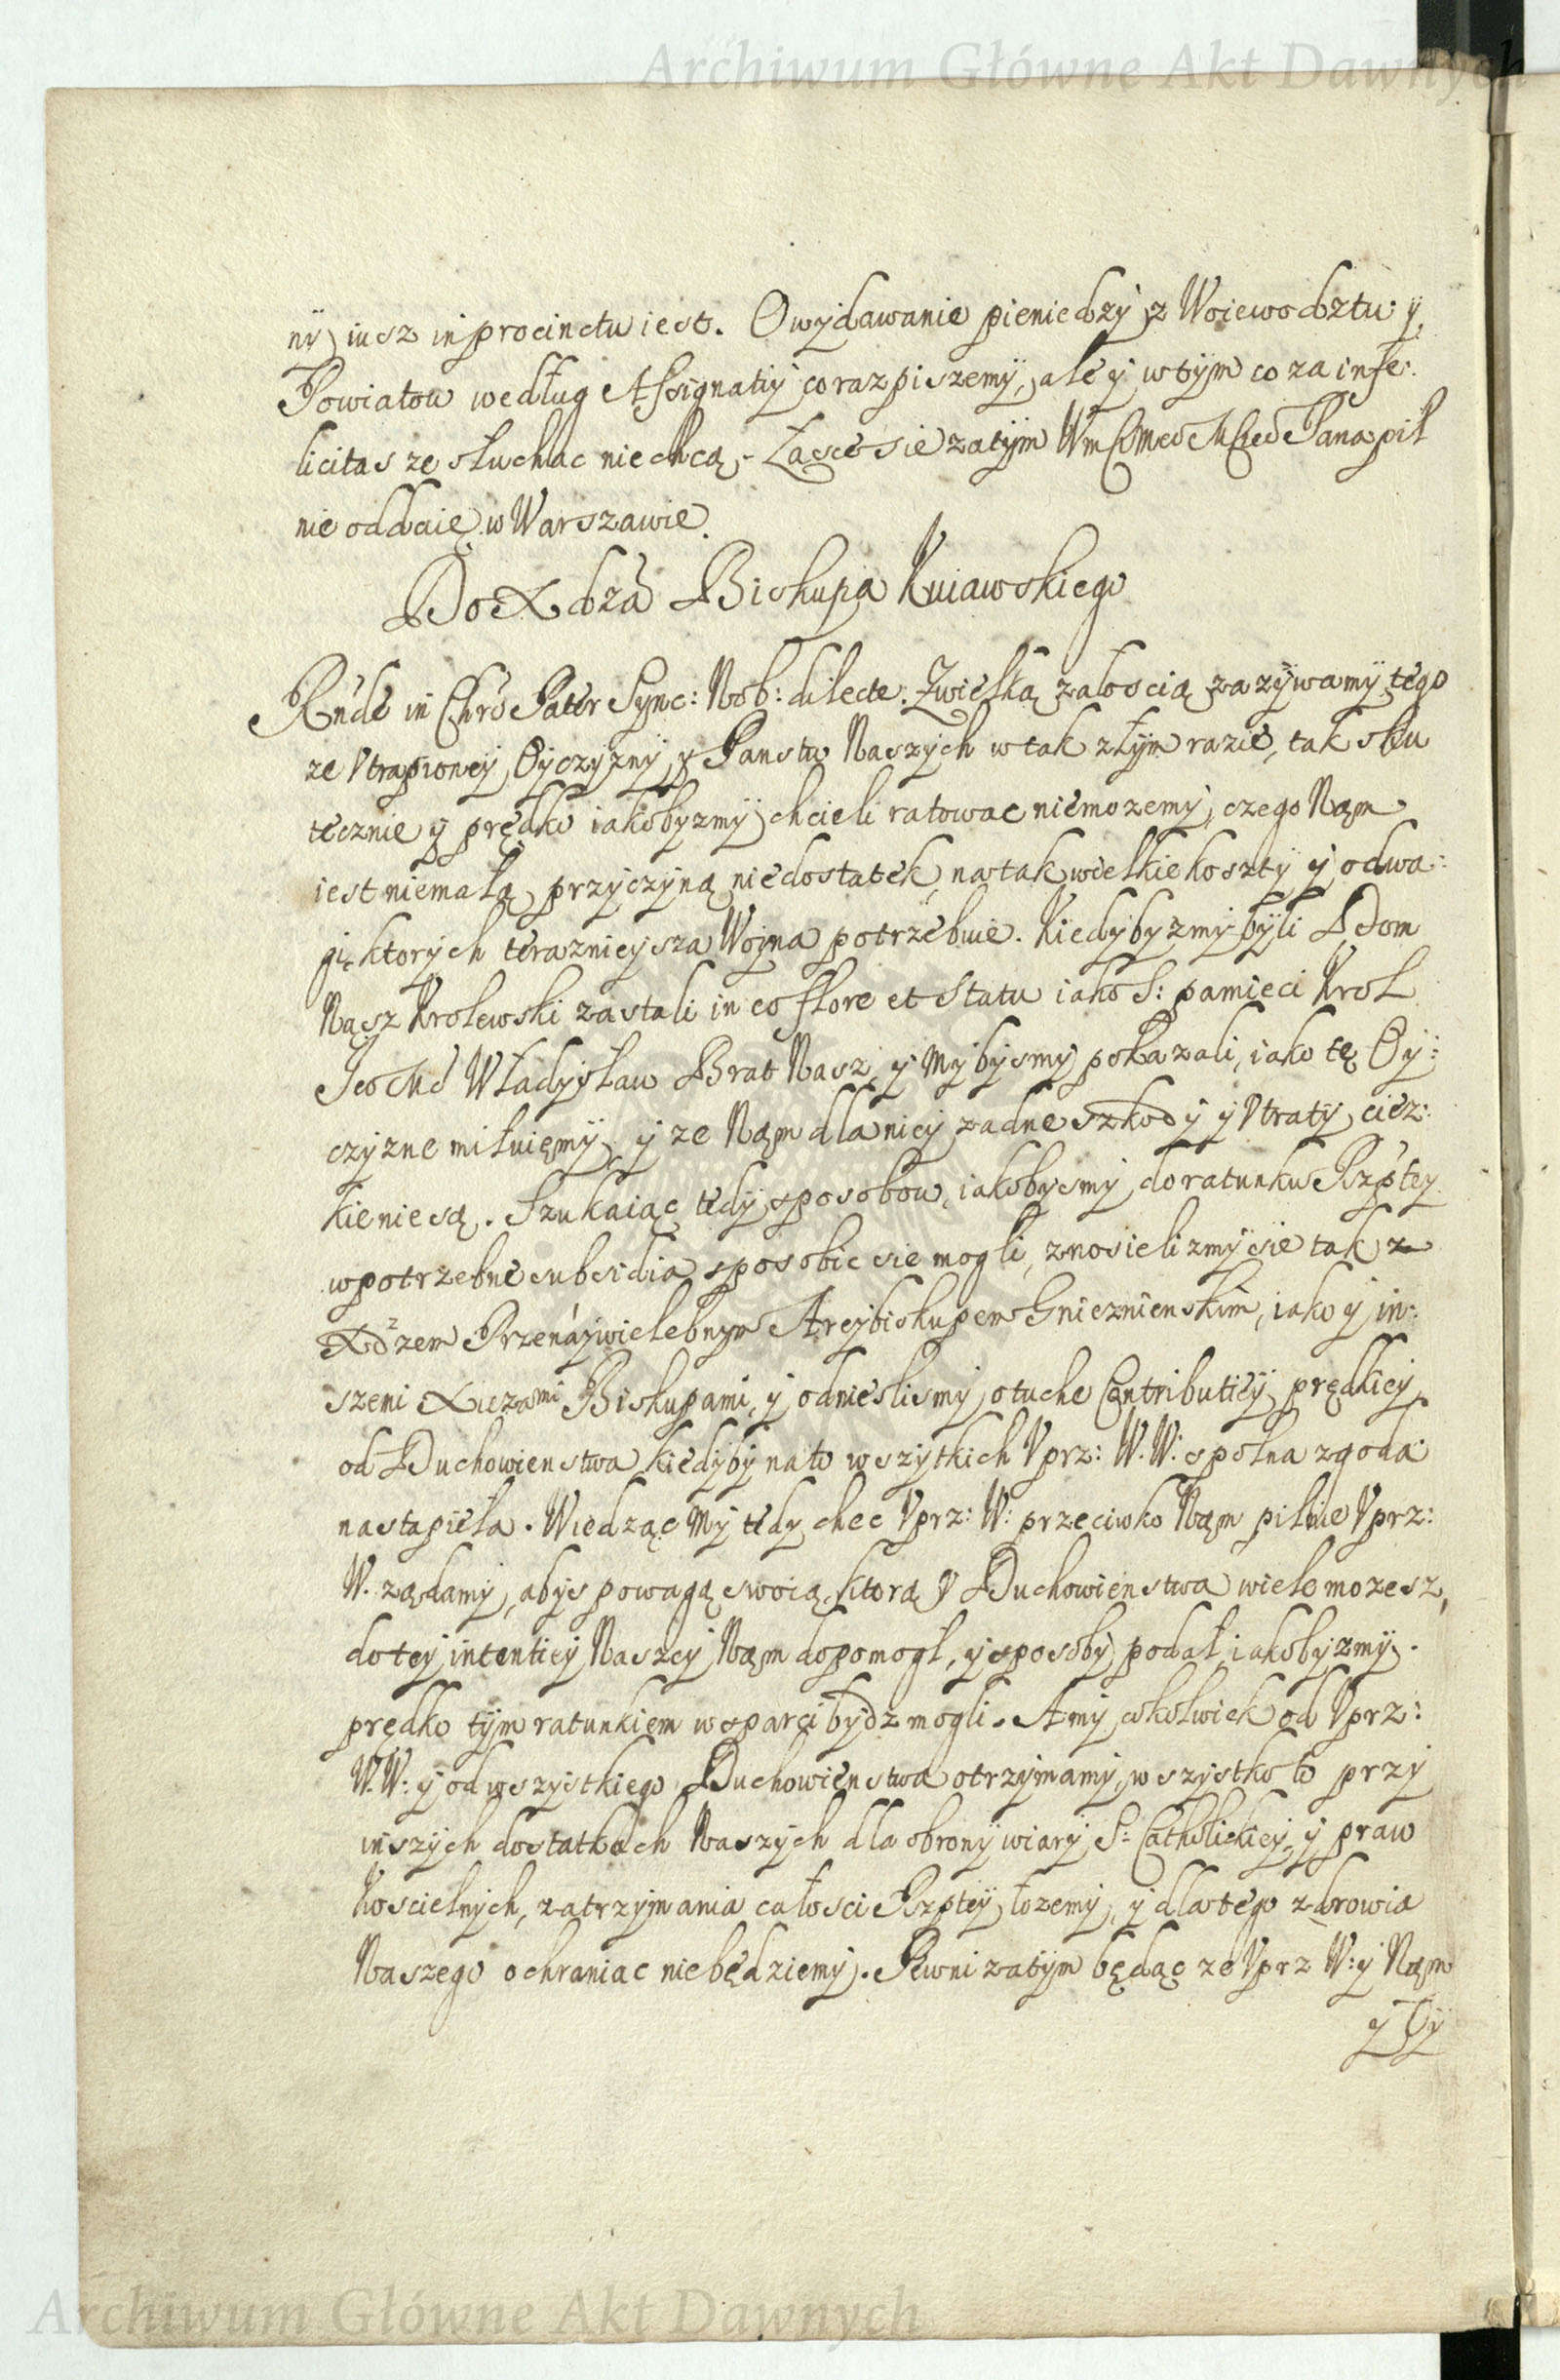 Archiwum Główne Akt Dawnych
ny iusz in procinctu iest. O wydawanie pieniedzy z Woiewodztw y
Powiatow według Assignatiy coraz piszemy, ale y w tym co za infe:
licitas ze słuchac niechcą. Łasce sie zatym Pana pil
nie oddaię w Warszawie.
Do Xdza Biskupa Kuiawskiego
Rnde in Chro Pater Sync: Nob: dilecte. Zwielką załoscią zazywamy tego
ze Vtrapioney Oyczyzny y Panstw Naszych w tak złym razie, tak sku
tecznie y prędko iakobyzmy chcieli ratowac niemozemy, czego Nąm
iest niemałą przyczyną niedostatek na tak wielkie koszty y odwa:
gi, ktorych teraznieysza Woyna potrzebuie. Kiedybyzmy byli Dom
Nasz Krolewski zastali in eo flore et Statu iako S: pamieci Krol
Jeo Mc Władysław Brat Nasz, y My bysmy pokazali, iako tę Oy:
czyzne miłuięmy, y ze Nąm dla niey zadne szkody y Vtraty ciez:
kie nie są. Szukaiąc tedy sposobow, iakobysmy do ratunku Rzptey
w potrzebne subsidia sposobic sie mogli, znosielizmy sie tak z
Xdzem Przenaywielebnym Arcybiskupem Gnieznienskim, iako y in:
szemi Xiezami Biskupami, y odnieslismy otuche Contributiey prędkiey
od Duchowienstwa kiedyby na to wszytkich Vprz: W. W: społna zgoda
nastąpieła. Wiedząc My tedy chec Vprz: W: przeciwko Nąm pilnie Vprz:
W. ządamy, abys powagą swoią, ktorą V Duchowienstwa wiele mozesz,
do tey intentiey Naszey Nąm dopomogł, y sposoby podał iakobyzmy
prędko tym ratunkiem wsparci bydz mogli. A my cokolwiek od Vprz:
W. W: y od wszystkiego Duchowienstwa otrzymamy, wszystko to przy
inszych dostatkach Naszych dla obrony wiary S: Catholickiey, y praw
Koscielnych, zatrzymania całosci Rzptey łozemy, y dla tego zdrowia
Naszego ochraniac niebędziemy. Pewni zatym będąc ze Vprz W: y Nąm
y Oy
Archiwum Główne Akt Dawnych